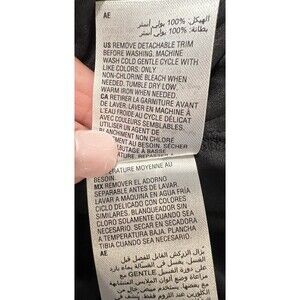 AE
الهيكل: 100% بولي أستر
بطانة: 100% بولي أستر
US REMOVE DETACHABLE TRIM
BEFORE WASHING. MACHINE
WASH COLD GENTLE CYCLE WITH
LIKE COLORS. ONLY
NON-CHLORINE BLEACH WHEN
NEEDED. TUMBLE DRY LOW.
WARM IRON WHEN NEEDED.
CA RETIRER LA GARNITURE AVANT
DE LAVER. LAVER EN MACHINE À
L'EAU FROIDE AU CYCLE DÉLICAT
AVEC COULEURS SEMBLABLES.
UTILISER UN AGENT DE
BLANCHIMENT NON CHLORÉ
AU BESOIN. SÉCHER
À BASSE
MOYENNE AU
BESOIN.
MX REMOVER EL ADORNO
SEPARABLE ANTES DE LAVAR.
LAVAR A MAQUINA EN AGUA FRIA
CICLO DELICADO CON COLORES
SIMILARES. BLANQUEADOR SIN
CLORO SOLAMENTE CUANDO SEA
NECESARIO. SECAR EN SECADORA
A TEMPERATURA BAJA. PLANCHA
TIBIA CUANDO SEA NECESARIO.
AE
يُزال التزيين القابل للفصل قبل
GENTLE